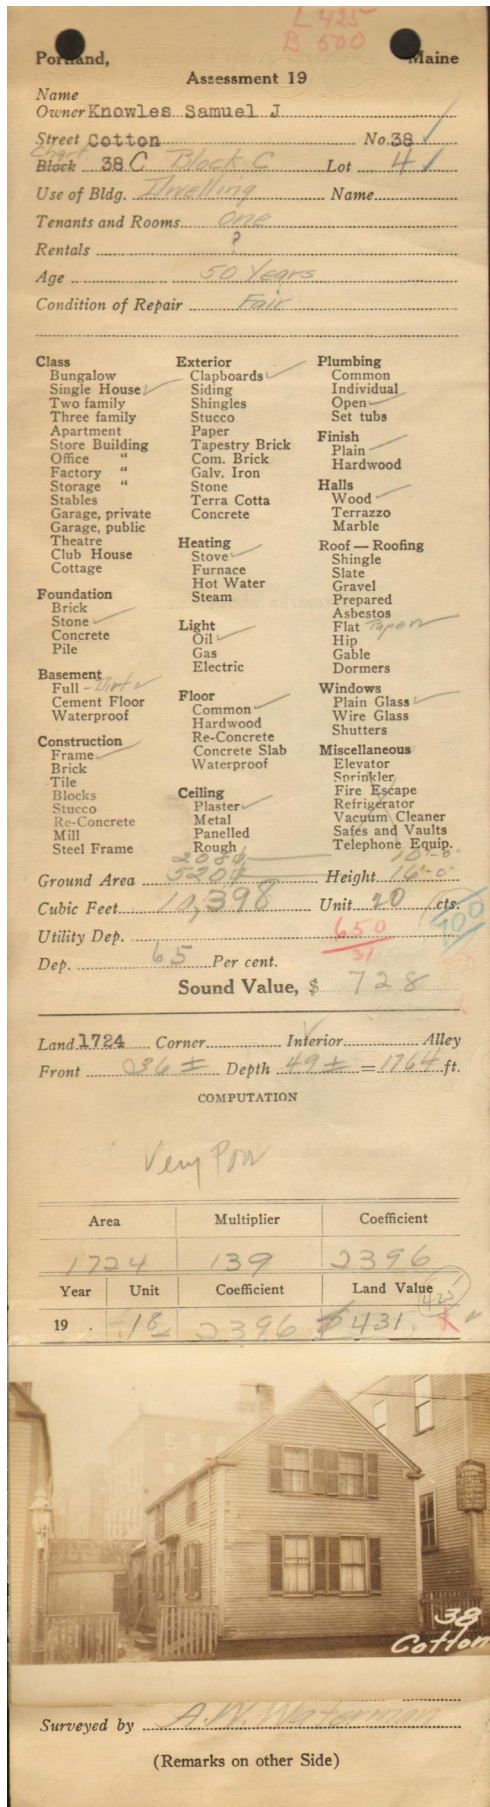 L 425
B 500
Portland, Maine
Assessment 19
Name
Owner Knowles Samuel J
Street Cotton No. 38
Chart
Block 38 C Block C Lot 4
Use of Bldg. Dwelling Name
Tenants and Rooms one
Rentals ?
Age 50 Years
Condition of Repair Fair
Class
Bungalow
Single House
Two family
Three family
Apartment
Store Building
Office "
Factory "
Storage "
Stables
Garage, private
Garage, public
Theatre
Club House
Cottage
Foundation
Brick
Stone
Concrete
Pile
Basement
Full - Dirt
Cement Floor
Waterproof
Construction
Frame
Brick
Tile
Blocks
Stucco
Re-Concrete
Mill
Steel Frame
Exterior
Clapboards
Siding
Shingles
Stucco
Paper
Tapestry Brick
Com. Brick
Galv. Iron
Stone
Terra Cotta
Concrete
Heating
Stove
Furnace
Hot Water
Steam
Light
Oil
Gas
Electric
Floor
Common
Hardwood
Re-Concrete
Concrete Slab
Waterproof
Ceiling
Plaster
Metal
Panelled
Rough
Plumbing
Common
Individual
Open
Set tubs
Finish
Plain
Hardwood
Halls
Wood
Terrazzo
Marble
Roof — Roofing
Shingle
Slate
Gravel
Prepared
Asbestos
Flat Paper
Hip
Gable
Dormers
Windows
Plain Glass
Wire Glass
Shutters
Miscellaneous
Elevator
Sprinkler
Fire Escape
Refrigerator
Vacuum Cleaner
Safes and Vaults
Telephone Equip.
208 10'-0"
Ground Area 520 Height 16'-0"
Cubic Feet 10,398 Unit 20 cts.
700
Utility Dep. 650
31
Dep. 65 Per cent.
Sound Value, $ 728
Land 1724 Corner Interior Alley
Front 36 ± Depth 49 ± = 1764 ft.
COMPUTATION
Very Poor
Area Multiplier Coefficient
1724 139 2396
Year Unit Coefficient Land Value
425
19 . .18 2396 $431.
38
Cotton
Surveyed by A.W. Waterman
(Remarks on other Side)